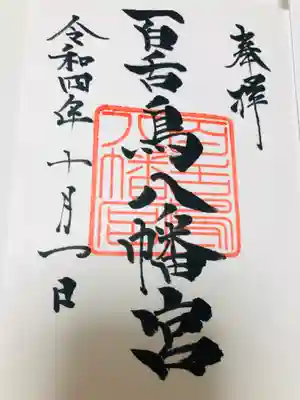 奉拝
百舌鳥八幡宮
百舌鳥八幡宮
令和四年 十月一日